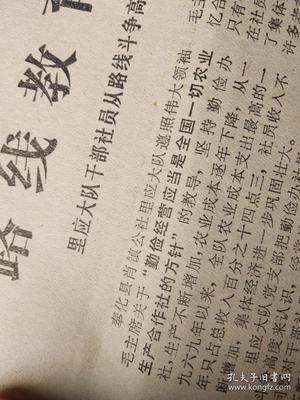 路线教育
里应大队干部社员从路线斗争高
奉化县肖镇公社里应大队遵照伟大领袖
毛主席关于“勤俭经营应当是全国一切农业
生产合作社的方针”的教导，坚持勤俭办
社，生产不断增加，农业成本逐年下降，从一
九六九年以来，全队农业成本支出最高的一
年只占总收入百分之十四点三，社员收入不
断增加，集体经济进一步巩固壮大。
里应大队党支部把勤俭办社
斗高度来认识，
毛主
会
只有
在社员
了集体
许多
孔夫子旧书网